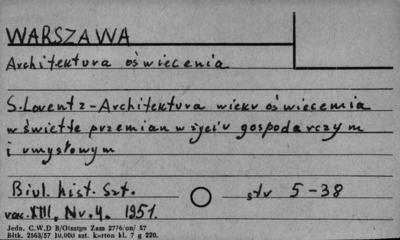 WARSZAWA
Architektura oświecenia
S. Lorentz - Architektura wieku oświecenia
w świetle przemian w życiu gospodarczym
i umysłowym
Biul. hist. Szt. str 5-38
roc. XIII, Nr. 4. 1951.
Jedn. C.W.D B/Olsztyn Zam 2776/on/ 57
Bltk. 2563/57 10.000 szt. karton kl. 7 g 220.